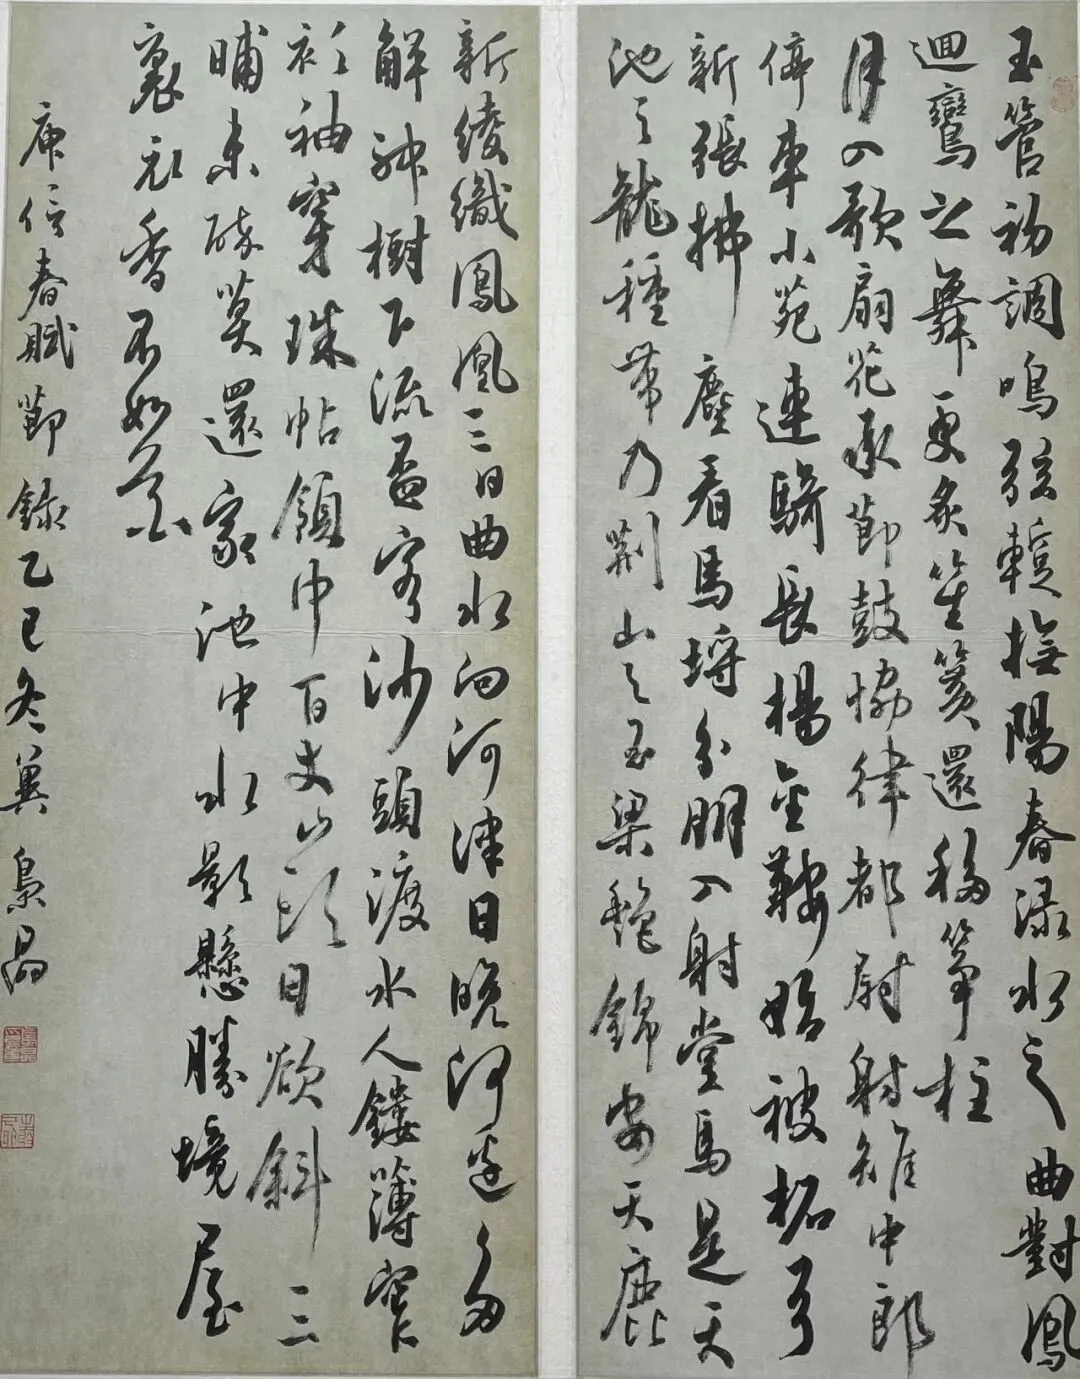 玉管初調鳴弦暫撫陽春渌水之曲對鳳
迴鸞之舞更炙笙簧還移筝柱
月入歌扇花承節鼓協律都尉射雉中郎
停車小苑連騎長楊金鞍始被柘弓
新張拂塵看馬埒分朋入射堂馬是天
池之龍種帶乃荆山之玉梁艷錦安天鹿
新綾織鳳凰三日曲水向河津日晚河邊多
解神樹下流盃客沙頭渡水人鏤簿窄
衫袖穿珠帖領巾百丈山頭日欲斜三
晡未醉莫還家池中水影懸勝境屋
裏衣香不如花
庾信春賦節錄乙巳冬冀